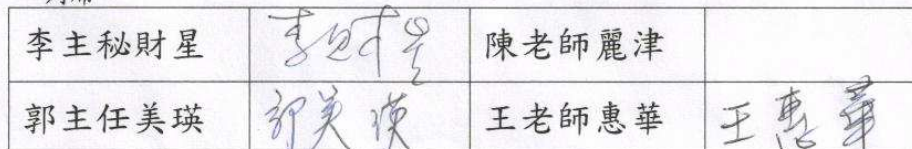 李主秘財星 李財星 陳老師麗津
郭主任美瑛 郭美瑛 王老師惠華 王惠華